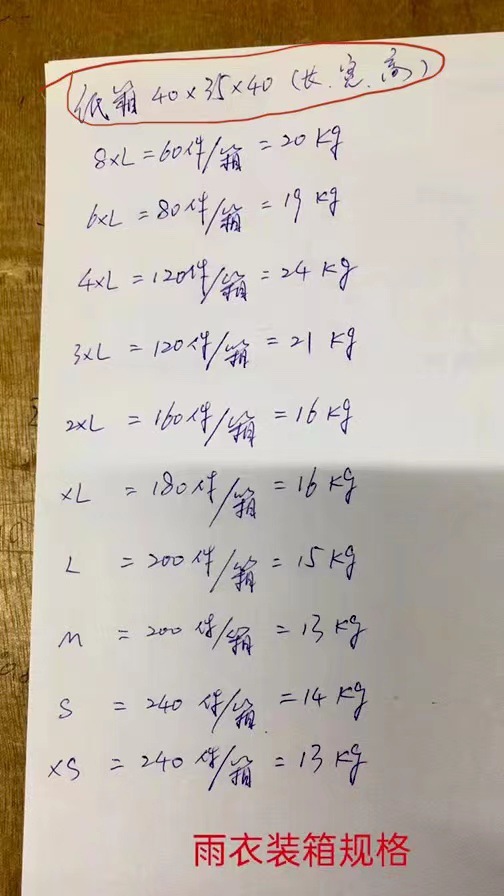 纸箱 40×35×40 (长.宽.高)
8×L=60件/箱=20 kg
6×L=80件/箱=19 kg
4×L=120件/箱=24 kg
3×L=120件/箱=21 kg
2×L=160件/箱=16 kg
×L=180件/箱=16 kg
L=200件/箱=15 kg
M=200件/箱=13 kg
S=240件/箱=14 kg
×S=240件/箱=13 kg
雨衣装箱规格